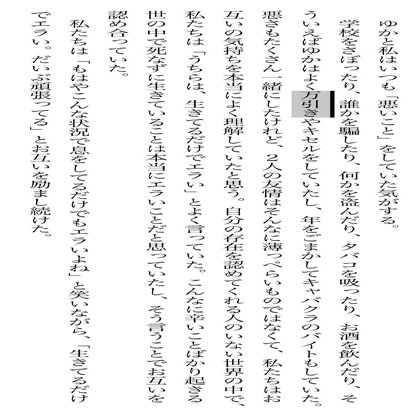 ゆかと私はいつも「悪いこと」をしていた気がする。
学校をさぼったり、誰かを騙したり、何かを盗んだり、タバコを吸ったり、お酒を飲んだり、そ
ういえばゆかはよく万引きやキセルをしていたし、年をごまかしてキャバクラのバイトもしていた。
悪さもたくさん一緒にしたけれど、2人の友情はそんなに薄っぺらいものではなくて、私たちはお
互いの気持ちを本当によく理解していたと思う。自分の存在を認めてくれる人のいない世界の中で、
私たちは「うちらは、生きてるだけでエラい」とよく言っていた。こんなに辛いことばかり起きる
世の中で死なずに生きていることは本当にエラいことだと思っていたし、そう言うことでお互いを
認め合っていた。
私たちは「もはやこんな状況で息をしてるだけでもエラいよね」と笑いながら、「生きてるだけ
でエラい。だいぶ頑張ってる」とお互いを励まし続けた。